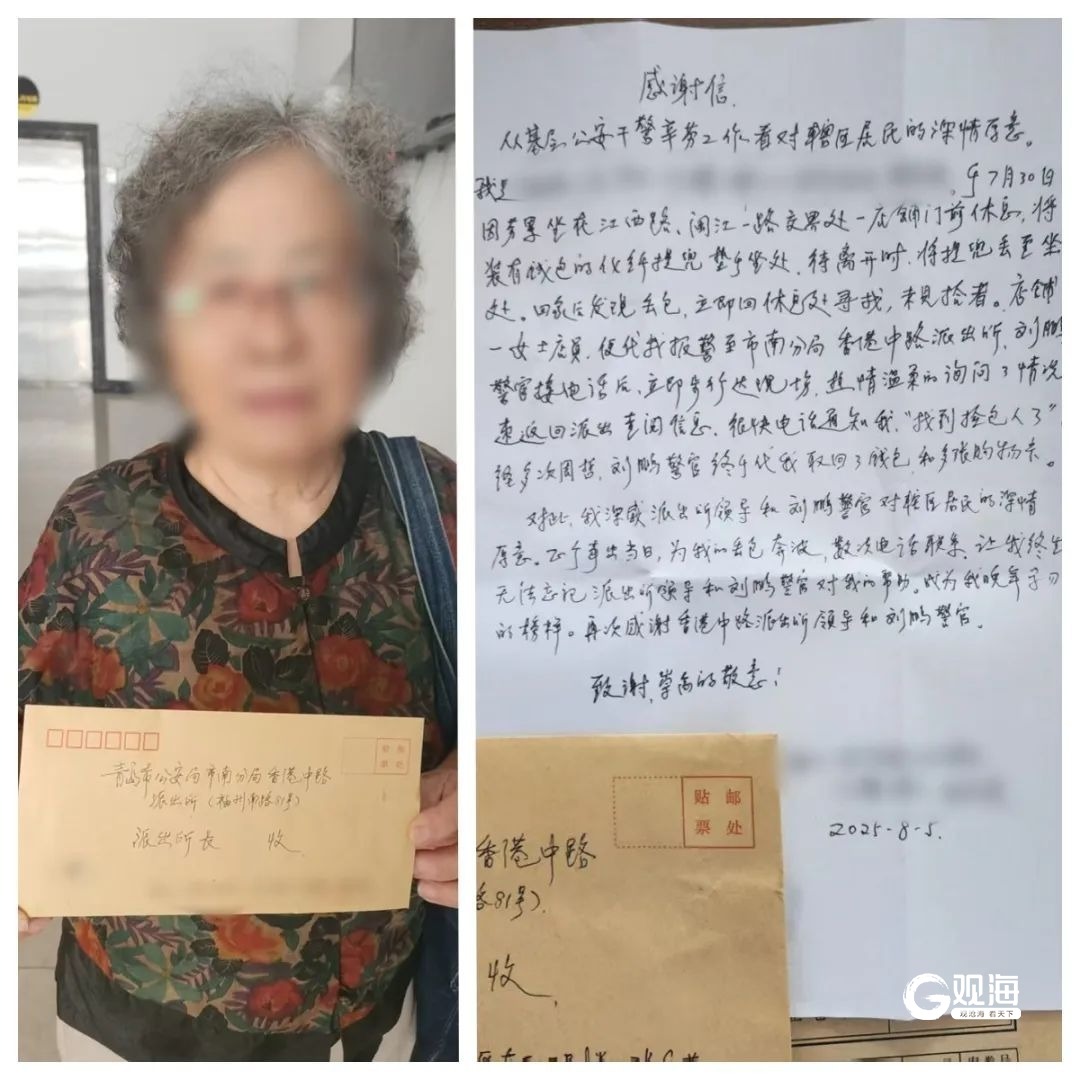 贴邮
票处
青岛市公安局市南分局香港中路
派出所（福州南路81号）
派出所长 收
感谢信
从基层公安干警辛劳工作看对辖区居民的深情厚意。
我是 于7月30日
因劳累坐在江西路、闽江一路交界处一店铺门前休息，将
装有钱包的化纤提兜垫于坐处，待离开时，将提兜丢至坐
处。回家后发现丢包，立即回休息处寻找，未见拾者。店铺
一女士店员，便代我报警至市南分局香港中路派出所，刘鹏
警官接电话后，立即步行达现场，热情温柔的询问了情况
速返回派出查阅信息，很快电话通知我，“找到捡包人了”
经多次周折，刘鹏警官终于代我取回了钱包，和多张购物卡。
对此，我深感派出所领导和刘鹏警官对辖区居民的深情
厚意。于事出当日，为我的丢包奔波，数次电话联系，让我终生
无法忘记派出所领导和刘鹏警官对我的帮助。成为我晚年学习
的榜样。再次感谢香港中路派出所领导和刘鹏警官。
致谢，崇高的敬意！
2025-8-5.
贴邮
票处
香港中路
路81号）
收
观海
观沧海 看天下